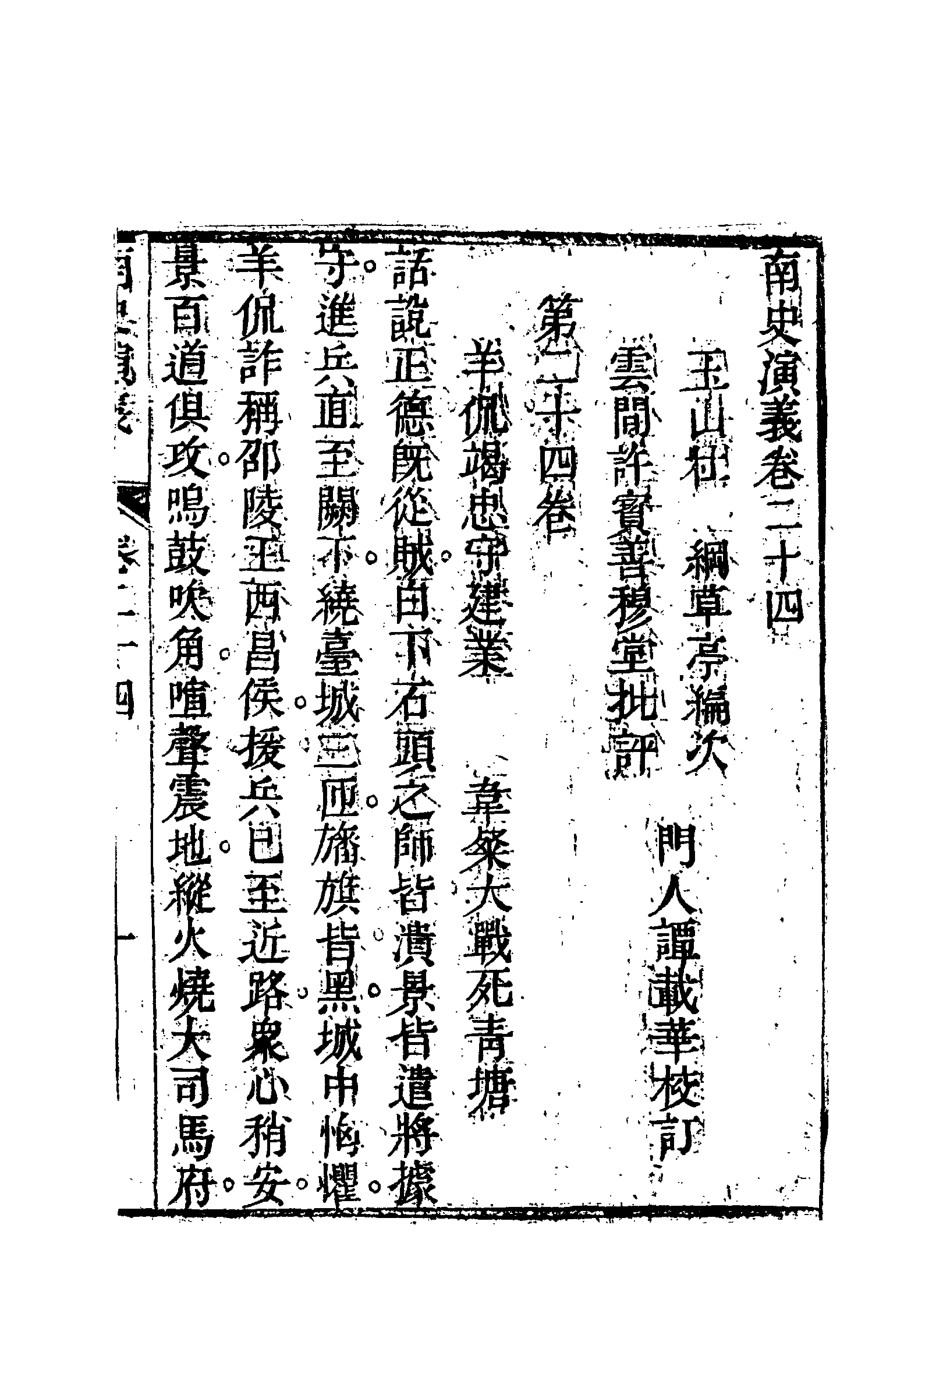 南史演義卷二十四
玉山杜　綱草亭編次
雲間許寶善穆堂批評
門人譚載華校訂
第二十四卷
羊侃竭忠守建業　韋粲大戰死青塘
話說正德旣從賊。白下石頭之師皆潰。景皆遣將據
守。進兵直至闕下。繞臺城三匝。旛旗皆黑。城中恟懼。
羊侃詐稱邵陵王西昌侯。援兵已至近路。衆心稍安。
景百道俱攻。鳴鼓吹角。喧聲震地。縱火燒大司馬府。
南史演義　卷二十四　一